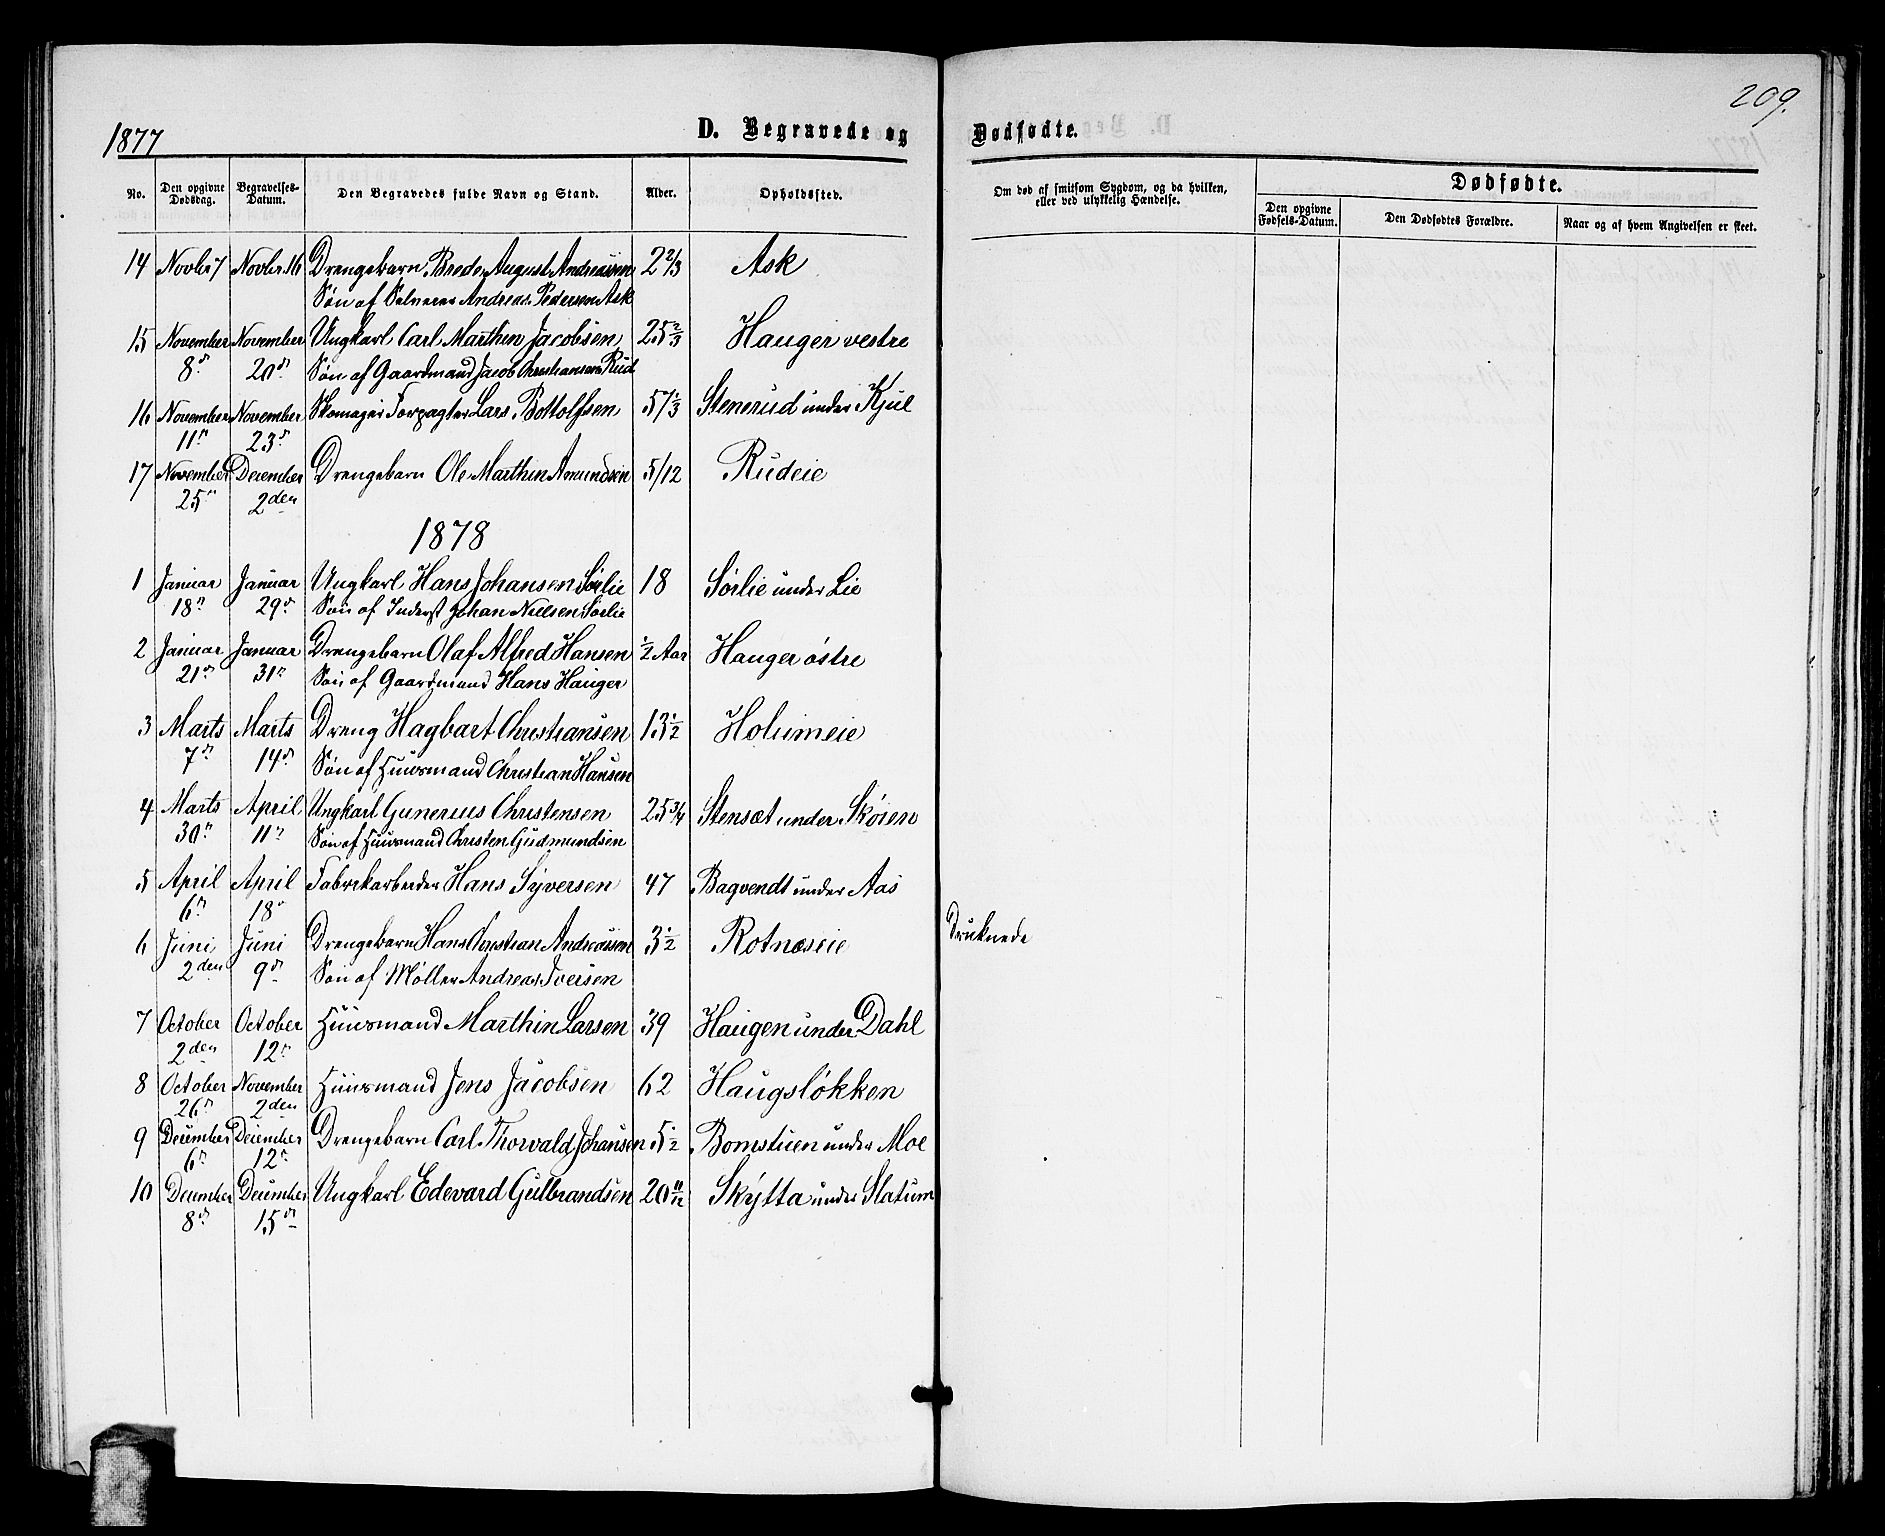 209.
1877
D. Begravede og Dødfødte.
No. Den opgivne Dødsdag. Begravelses-Datum. Den Begravedes fulde Navn og Stand. Alder. Opholdssted. Om død af smitsom Sygdom, og da hvilken, eller ved ulykkelig Hændelse. Dødfødte. Den opgivne Fødsels-Datum. Den Dødfødtes Forældre. Naar og af hvem Angivelsen er skeet.
14 Novbr 7 Novbr 16 Drengebarn Brede August Andreassen 2 2/3 Ask
Søn af Selveier Andreas Pedersen Ask
15 November November Ungkarl Carl Marthin Jacobsen 25 2/3 Hauger vestre
8de 20de Søn af Gaardmand Jacob Christiansen Rud
16 November November Skomager Forpagter Lars Bottolfsen 57 1/3 Stenerud under Kjul
11te 23de
17 November December Drengebarn Ole Marthin Amundsen 5/12 Rudeie
25te 2den
1878
1 Januar Januar Ungkarl Hans Johansen Sørlie 18 Sørlie under Lie
18de 29de Søn af Inderst Johan Nielsen Sørlie
2 Januar Januar Drengebarn Olaf Alfred Hansen 1/2 Aar Hauger østre
21de 31te Søn af Gaardmand Hans Hauger
3 Marts Marts Dreng Hagbart Christiansen 13 1/2 Holumeie
7de 14de Søn af Huusmand Christian Hansen
4 Marts April Ungkarl Gunerius Christensen 25 3/4 Stensæt under Skøien
30te 11te Søn af Huusmand Christen Gudmundsen
5 April April Fabrikarbeider Hans Syversen 47 Bagvendt under Aas
6te 18de
6 Juni Juni Drengebarn Hans Christian Andreassen 3 1/2 Rotnæseie Druknede
2den 9de Søn af Møller Andreas Iversen
7 October October Huusmand Marthin Larsen 39 Haugen under Dahl
2den 12te
8 October November Huusmand Jens Jacobsen 62 Haugsløkken
26de 2den
9 December December Drengebarn Carl Thorvald Johansen 5 1/2 Bomstuen under Moe
6te 12te
10 December December Ungkarl Edevard Gulbrandsen 20 11/12 Skytta under Slatum
8de 15de